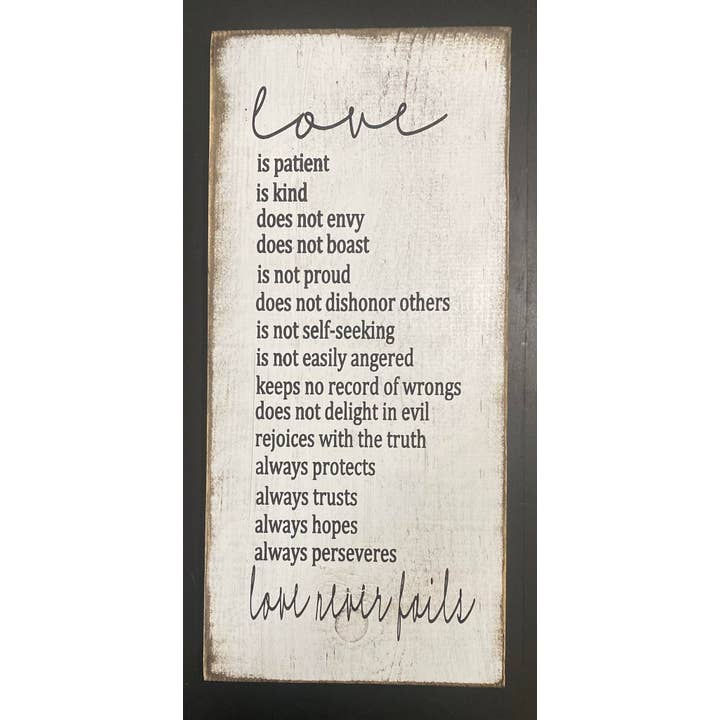 love
is patient
is kind
does not envy
does not boast
is not proud
does not dishonor others
is not self-seeking
is not easily angered
keeps no record of wrongs
does not delight in evil
rejoices with the truth
always protects
always trusts
always hopes
always perseveres
love never fails